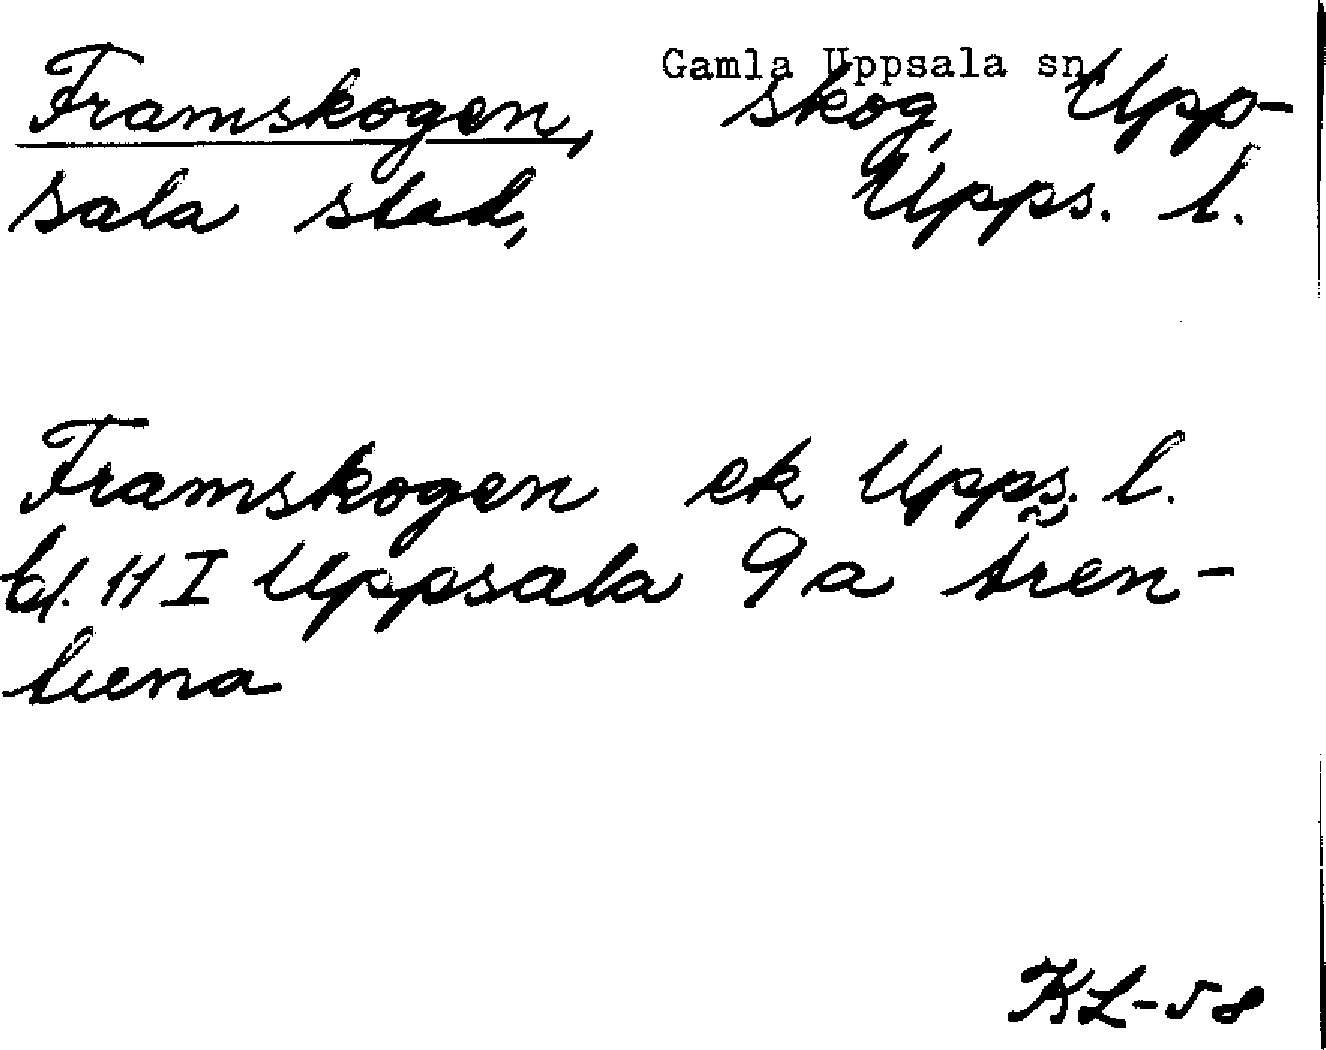 Gamla Uppsala sn
Framskogen, skog, Upp-
sala stad, Upps. l.
Framskogen ek Upps. l.
bl. 11 I Uppsala 9a
KL-58